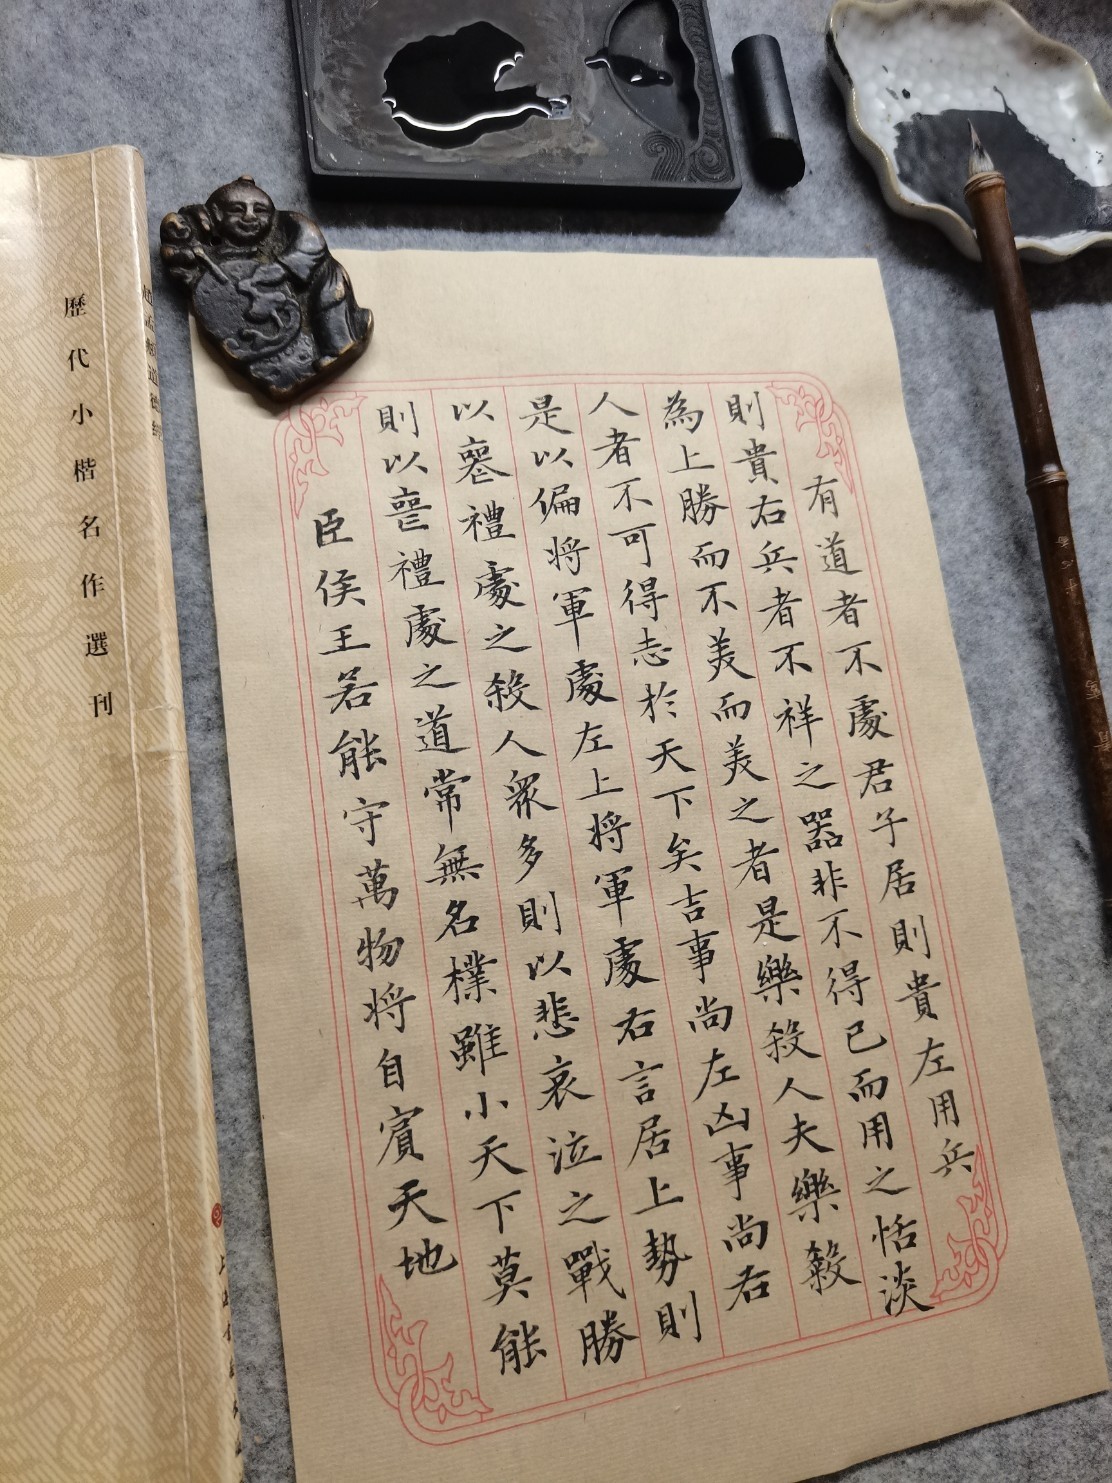 有道者不處君子居則貴左用兵
則貴右兵者不祥之器非不得已而用之恬淡
為上勝而不美而美之者是樂殺人夫樂殺
人者不可得志於天下矣吉事尚左凶事尚右
是以偏将軍處左上将軍處右言居上勢則
以喪禮處之殺人衆多則以悲哀泣之戰勝
則以喪禮處之道常無名樸雖小天下莫能
臣侯王若能守萬物将自賓天地
歷代小楷名作選刊